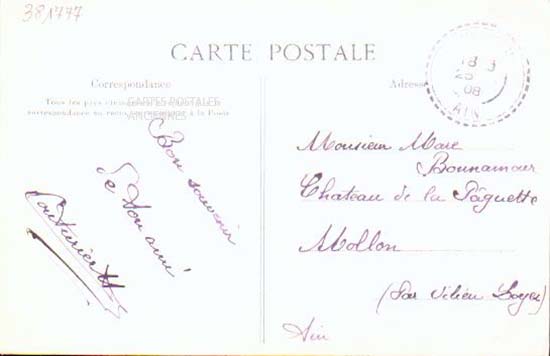 381777
CARTE POSTALE
Correspondance
Tous les pays étrangers n'acceptent pas la
correspondance au recto, se renseigner à la Poste
CARTES POSTALES
ANCIENNES
Bon souvenir
de ton ami
Couturier H
Adresse
18
25
08
AIN
Monsieur Marc
Bonnamour
Chateau de la Pâquette
Mollon
(Par Vilieu Loyes)
Ain